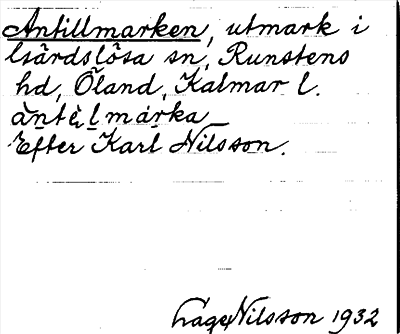 Antillmarken, utmark i
Gärdslösa sn, Runstens
hd, Öland, Kalmar l.
àntélmárka
Efter Karl Nilsson.
Lage Nilsson 1932